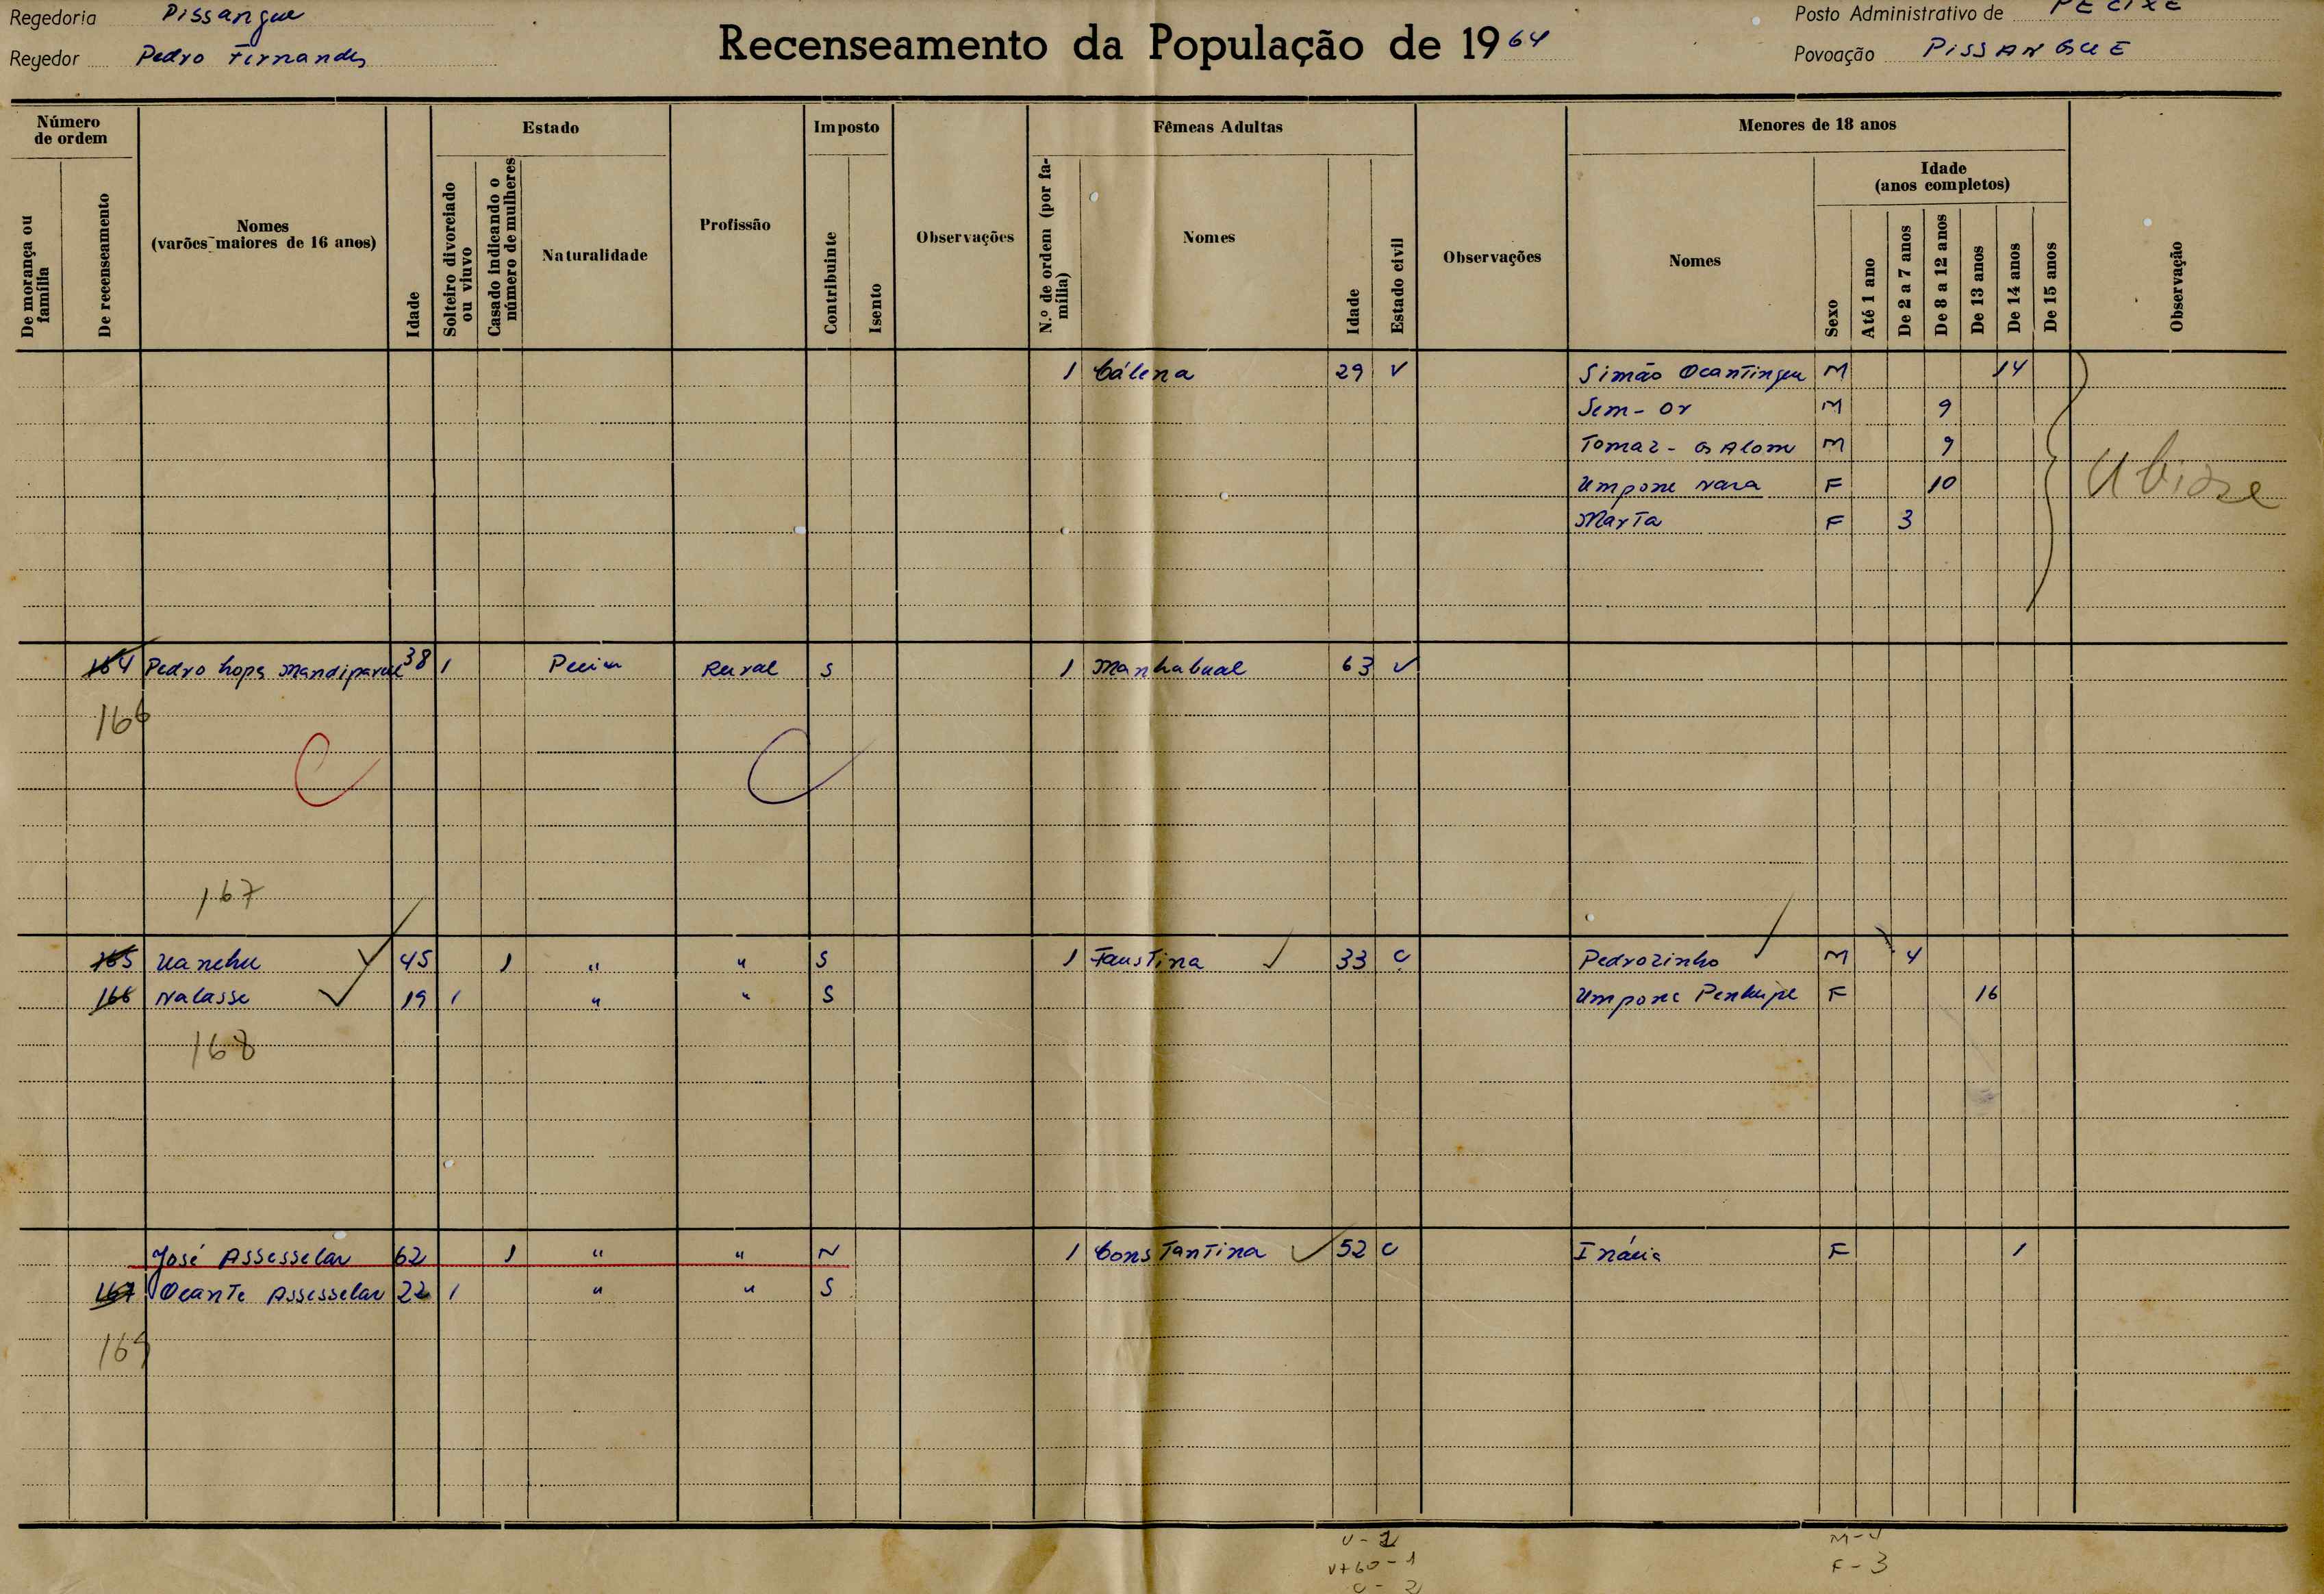 Regedoria Pissangue
Regedor Pedro Fernandes
Recenseamento da População de 1964
Posto Administrativo de PECIXE
Povoação PISSANGUE
Número de ordem
De morança ou família
De recenseamento
Nomes
(varões maiores de 16 anos)
Idade
Estado
Solteiro divorciado ou viuvo
Casado indicando o número de mulheres
Naturalidade
Profissão
Imposto
Contribuinte
Isento
Observações
Fêmeas Adultas
N.º de ordem (por família)
Nomes
Idade
Estado civil
Observações
Menores de 18 anos
Nomes
Idade
(anos completos)
Sexo
Até 1 ano
De 2 a 7 anos
De 8 a 12 anos
De 13 anos
De 14 anos
De 15 anos
Observação
1 Cálena 29 V Simão Ocantingue M 14
Sem-or M 9
Tomaz - M 9
Umpone Nara F 10
Marta F 3
164 Pedro Lopes 38 1 Rural S 1 Manhabual 63 V
166
167
165 Uanehu 45 1 " " S 1 Faustina 33 C Pedrozinho M 4
166 Nalasse 19 1 " " S Umpone F 16
168
José Assesselau 62 1 " " N 1 Constantina 52 C Inácia F 1
167 Ocante Assesselau 22 1 " " S
169
V+60-1
F-3